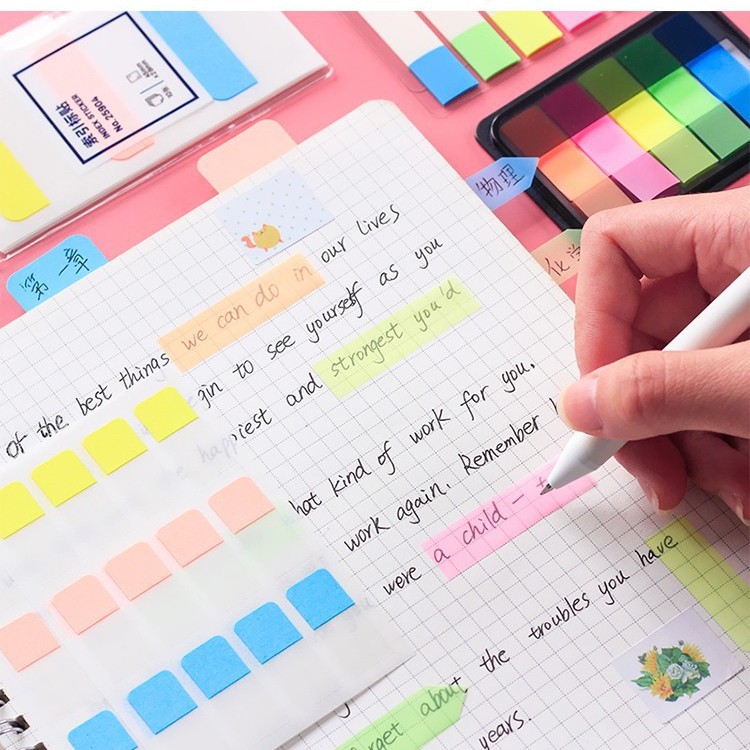 索引标贴
INDEX STICKER
No.2590A
第一章
物理
化学
our lives
we can do in
of the best things
as you
to see yourself
strongest you'd
happiest and
kind of work for you.
work again. Remember
were a child -
have
the troubles you
forget about
years.